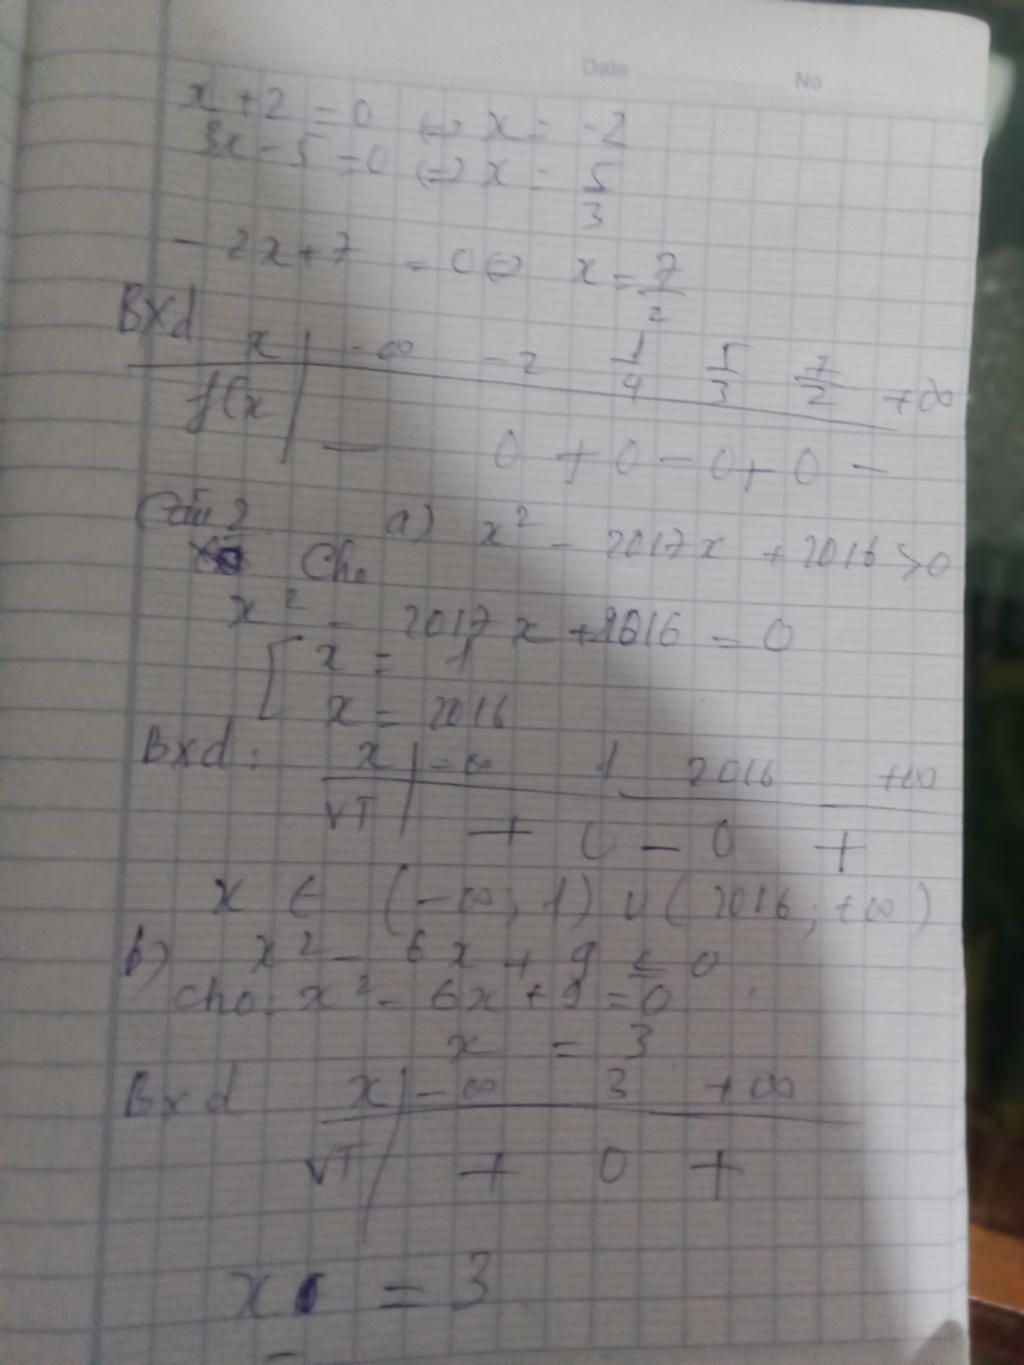 Date No
x + 2 = 0 ⇔ x = -2
3x - 5 = 0 ⇔ x = 5/3
- 2x + 7 = 0 ⇔ x = 7/2
Bxd
x | -∞ -2 1/4 5/3 7/2 +∞
f(x | - 0 + 0 - 0 + 0 -
Câu 2 a) x² - 2017x + 2016 > 0
Cho
x² - 2017x + 2016 = 0
[ x = 1
x = 2016
Bxd: x | -∞ 1 2016 +∞
VT | + 0 - 0 +
x ∈ (-∞; 1) ∪ (2016; +∞)
b) x² - 6x + 9 ≤ 0
cho: x² - 6x + 9 = 0
x = 3
Bxd x | -∞ 3 +∞
VT | + 0 +
x = 3